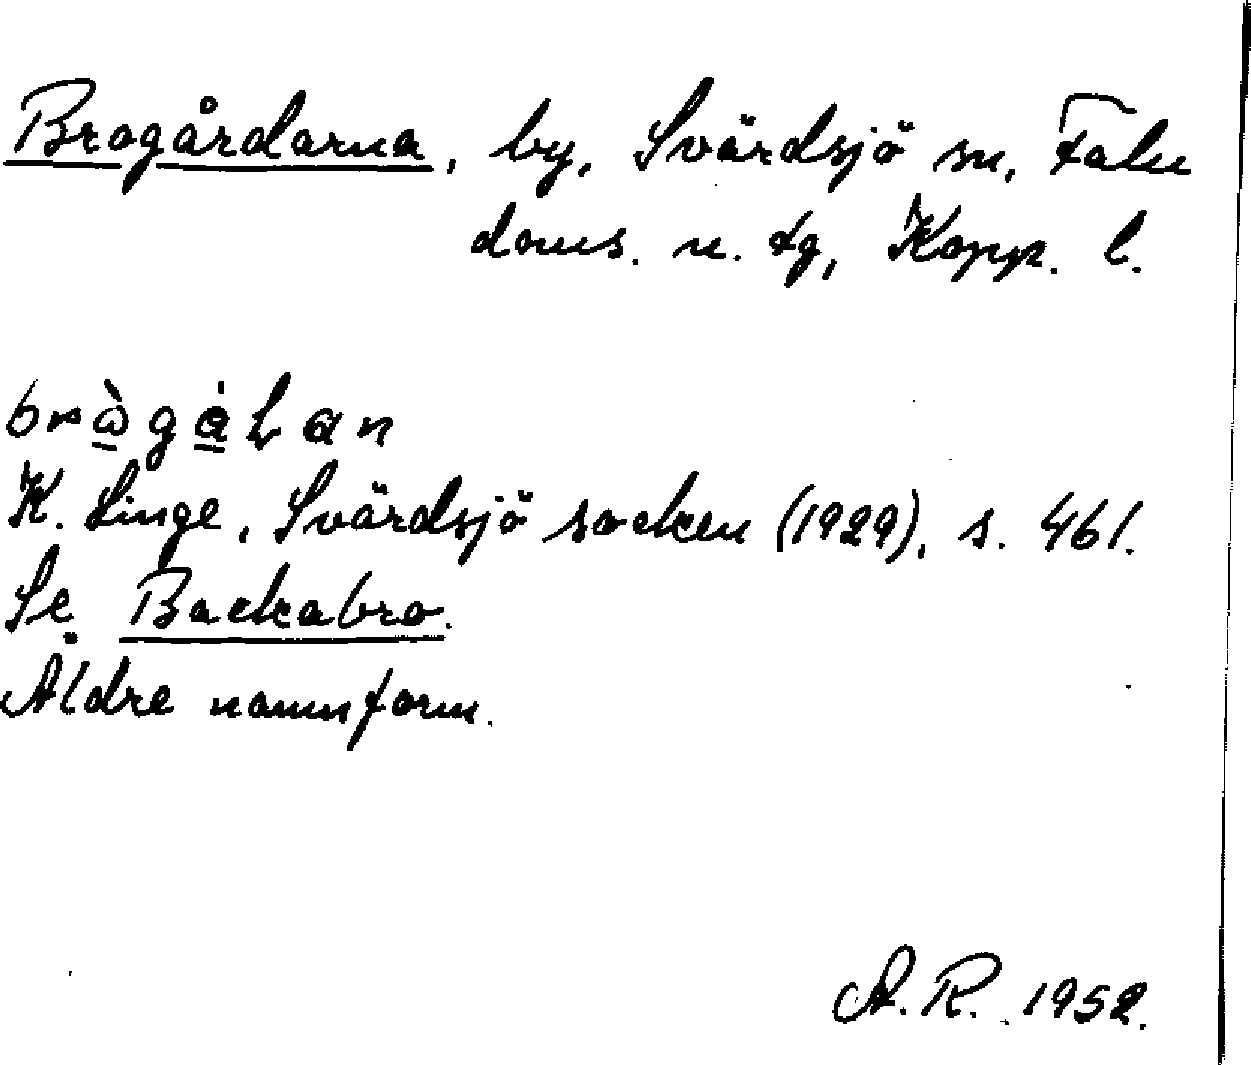 Brogårdarna, by, Svärdsjö sn, Falu
doms. n. tg, Kopp. l.
K. Linge, Svärdsjö socken (1929), s. 461.
Se Backabro.
Äldre namnform.
A. R. 1952.